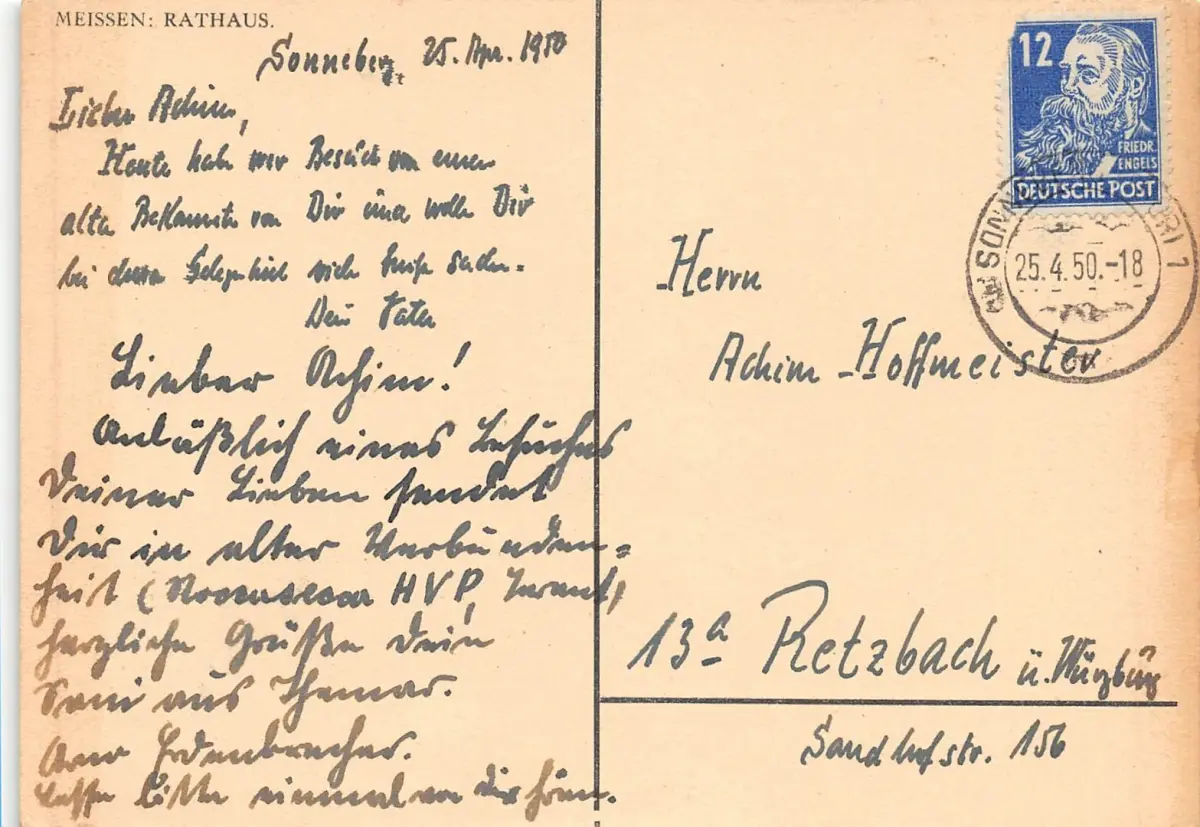 MEISSEN: RATHAUS.
Sonneberg, 25. Apr. 1950
Lieber Achim,
Heute hab wir Besuch von einem
alten Bekannten von Dir und wollen Dir
bei dieser Gelegenheit viele Grüße senden.
Dein Vater
Lieber Achim!
Anläßlich eines Besuches
Deiner Lieben sendet
Dir in alter Verbunden=
heit ( HVP,
herzliche Grüße Dein
Sani aus Themar.
Arno
Lasse bitte einmal von Dir hören.
12
FRIEDR.
ENGELS
DEUTSCHE POST
25.4.50.-18
Herrn
Achim Hoffmeister
13a Retzbach ü. Würzburg
Sandhofstr. 156